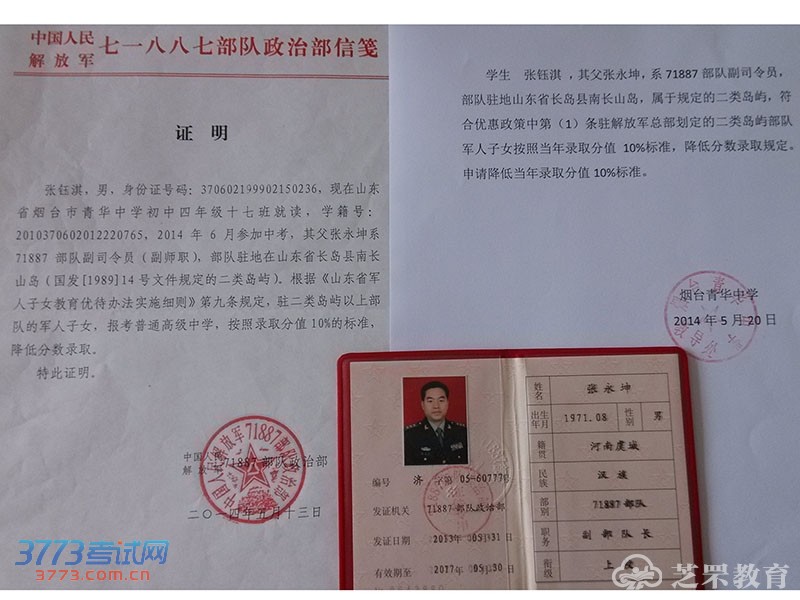 中国人民
解放军
七一八八七部队政治部信笺
证 明
张钰淇，男，身份证号码：370602199902150236，现在山东
省烟台市青华中学初中四年级十七班就读，学籍号：
2010370602012220765，2014 年 6 月参加中考，其父张永坤系
71887 部队副司令员（副师职），部队驻地在山东省长岛县南长
山岛（国发[1989]14 号文件规定的二类岛屿）。根据《山东省军
人子女教育优待办法实施细则》第九条规定，驻二类岛屿以上部
队的军人子女，报考普通高级中学，按照录取分值 10%的标准，
降低分数录取。
特此证明。
中国人民
解放军
71887 部队政治部
二〇一四年五月十三日
中国人民解放军71887部队政治部
学生 张钰淇 ，其父张永坤，系 71887 部队副司令员，
部队驻地山东省长岛县南长山岛，属于规定的二类岛屿，符
合优惠政策中第（1）条驻解放军总部划定的二类岛屿部队
军人子女按照当年录取分值 10%标准，降低分数录取规定。
申请降低当年录取分值 10%标准。
烟台青华中学
2014 年 5 月 20 日
编号 济 字第 05-60777
发证机关 71887 部队政治部
发证日期 2013 年 05 月 31 日
有效期至 2077 年 05 月 30 日
姓名 张永坤
出生年月 1971.08 性别 男
籍贯 河南虞城
民族 汉族
部别 71887 部队
职务 副部队长
衔级 上校
3773考试网
3773.com.cn
芝罘教育